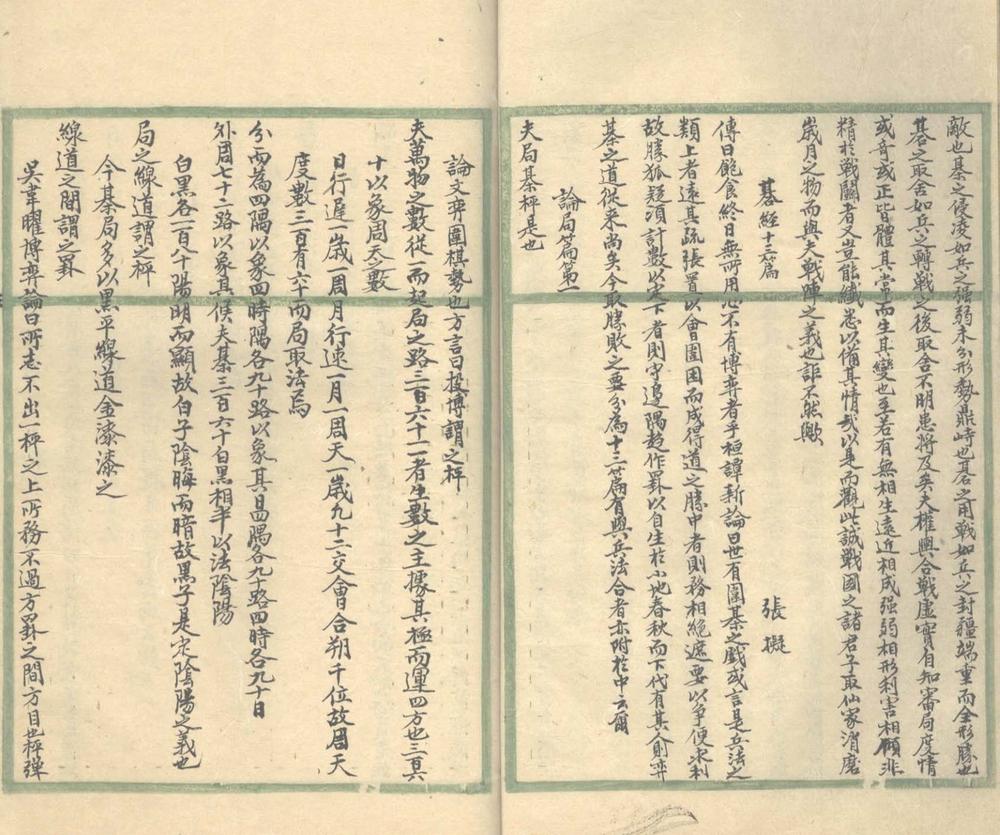 敵也棊之侵凌如兵之强弱未分形勢鼎峙也碁之用戰如兵之封疆端重而全形勝也
碁之取舍如兵之轉戰之後取舍不明患將及矣夫權輿合戰虛實自知審局度情
或奇或正皆體其常而生其變也至若有無相生遠近相成强弱相形利害相顧非
精於戰鬬者又豈能纖悉以備其情哉以是而觀此誠戰國之諸君子取仙家消磨
歲月之物而與夫戰陣之義也詎不然歟
棊經十三篇 張擬
傳曰飽食終日無所用心不有博弈者乎桓譚新論曰世有圍棊之戲或言是兵法之
類上者遠其疏張置以會圍因而成得道之勝中者則務相絶遮要以爭便求利
故勝狐疑須計數以定下者則守邊隅趍作罫以自生於小地春秋而下代有其人則弈
棊之道從来尚矣今取勝敗之要分為十三篇有與兵法合者亦附於中云爾
論局篇第一
夫局棊枰是也
論文弈圍棋勢也方言曰投博謂之枰
夫萬物之數從一而起局之路三百六十一者生數之主據其極而運四方也三百六
十以象周天之數
日行遲一歲一周月行速一月一周天一歲九十二交會合朔千位故周天
度數三百有六十而局取法焉
分而為四隅以象四時隅各九十路以象其日四隅各九十路四時各九十日
外周七十二路以象其候夫棊三百六十白黑相半以法陰陽
白黑各一百八十陽明而顯故白子陰晦而暗故黑子是定陰陽之義也
局之線道謂之枰
今棊局多以黑平線道金漆漆之
線道之間謂之罫
吳韋曜博弈論曰所志不出一枰之上所務不過方罫之間方目也枰彈